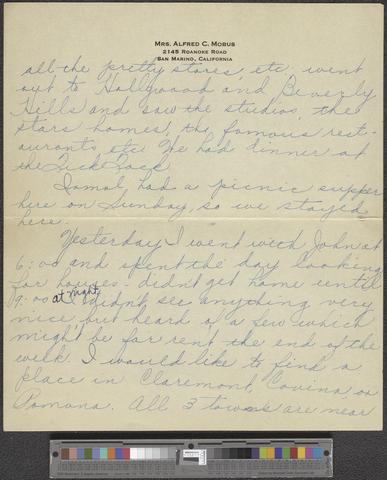 MRS. ALFRED C. MOBUS
2145 ROANOKE ROAD
SAN MARINO, CALIFORNIA
all the pretty stores, etc; went
out to Hollywood and Beverly
Hills and saw the studios, the
stars homes', the famous rest-
aurants, etc. We had dinner at
the Tick Tock.
had a picnic supper
here on Sunday, so we stayed
here.
Yesterday I went with John at
6:00 and spent the day looking
for houses - didn't get home until
9:00 at night. I didn't see anything very
nice, but heard of a few which
might be for rent the end of the
week. I would like to find a
place in Claremont, Covina, or
Pomona. All 3 towns are near